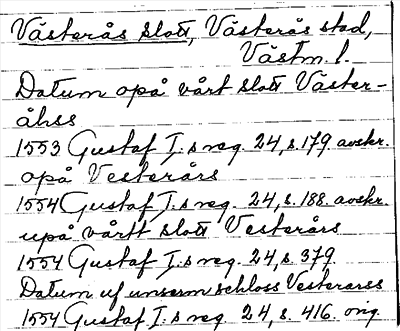 Västerås slott, Västerås stad,
Västm. l.
Datum opå vårt slott Väster-
åhss
1553 Gustaf I:s reg. 24, s. 179. avskr.
opå Vesterårs
1554 Gustaf I:s reg. 24, s. 188. avskr.
upå vårtt slott Vesterårs
1554 Gustaf I:s reg. 24, s. 379.
Datum uf unserm schloss Vesterarss
1554 Gustaf I:s reg. 24, s. 416. orig.